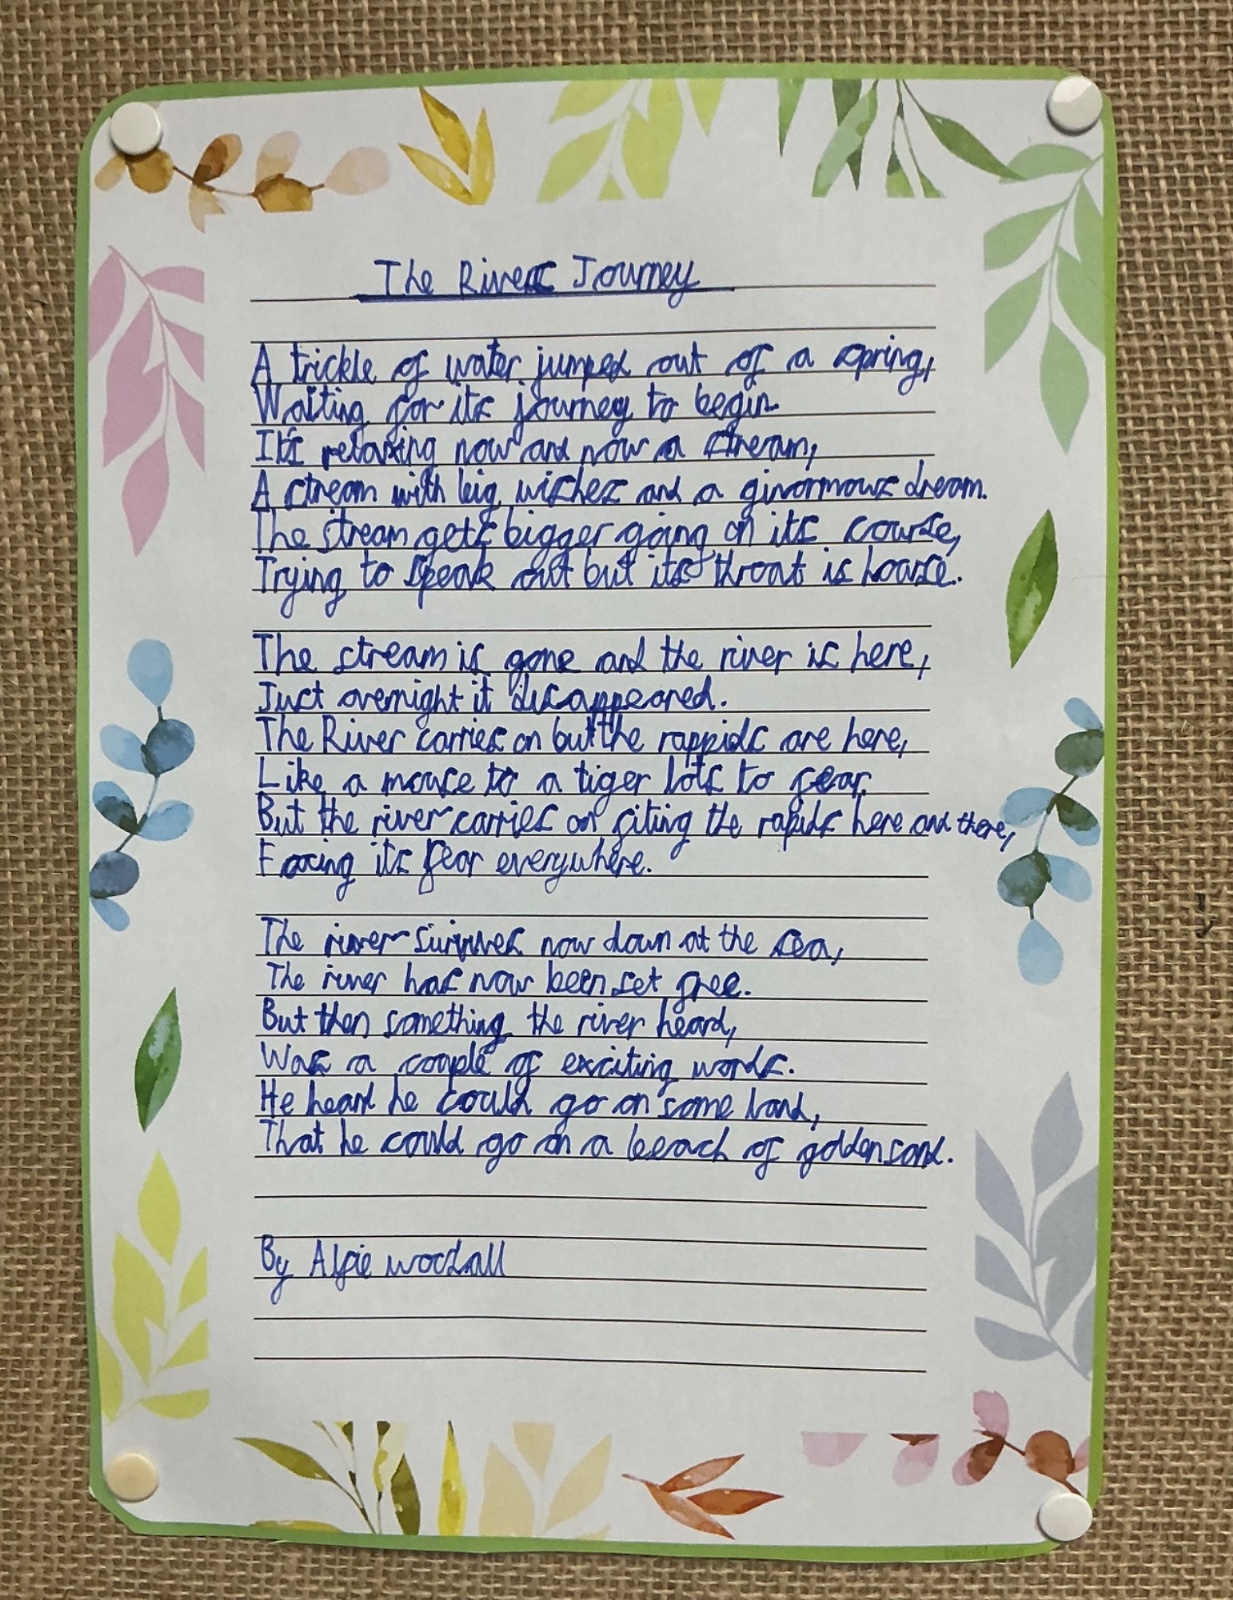 The Rivers Journey
A trickle of water jumped out of a spring,
Waiting for its journey to begin.
It's relaxing now and now a stream,
A stream with big wishes and a ginormous dream.
The stream gets bigger going on its course,
Trying to speak out but its throat is hoarse.
The stream is gone and the river is here,
Just overnight it disappeared.
The River carries on but the rappids are here,
Like a mouse to a tiger lots to fear.
But the river carries on fiting the rapids here and there,
Facing its fear everywhere.
The river survives now down at the sea,
The river has now been set free.
But then something the river heard,
Was a couple of exciting words.
He heard he could go on some land,
That he could go on a beach of golden sand.
By Alfie woodall